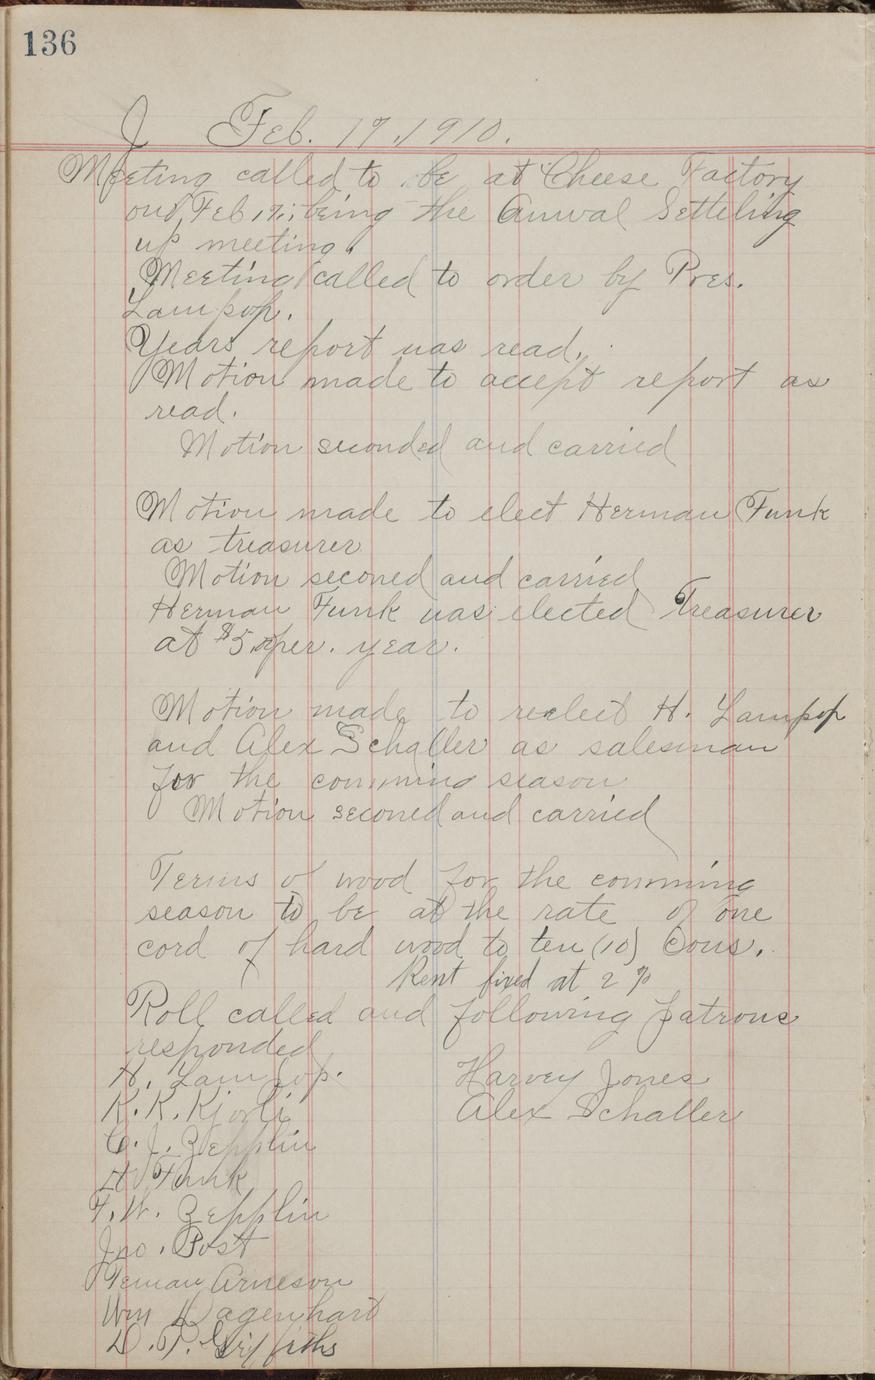 136
J Feb. 17, 1910.
Meeting called to be at Cheese Factory
on Feb 17, being the Anual Setteling
up meeting.
Meeting called to order by Pres.
Lampop.
Years report was read.
Motion made to accept report as
read.
Motion seconded and carried
Motion made to elect Herman Funk
as treasurer
Motion seconed and carried
Herman Funk was elected Treasurer
at $5. per. year.
Motion made to reelect H. Lampop
and Alex Schaller as salesman
for the comming season
Motion seconed and carried
Terms of wood for the comming
season to be at the rate of one
cord of hard wood to ten (10) Cows.
Rent fixed at 2 %
Roll called and following patrons
responded
H. Lampop. Harvey Jones
K. K. Kjorli Alex Schaller
C. J. Zepplin
H Funk
F. W. Zepplin
Jno. Post
Teman Arneson
Wm Dagenhart
D. P. Griffiths